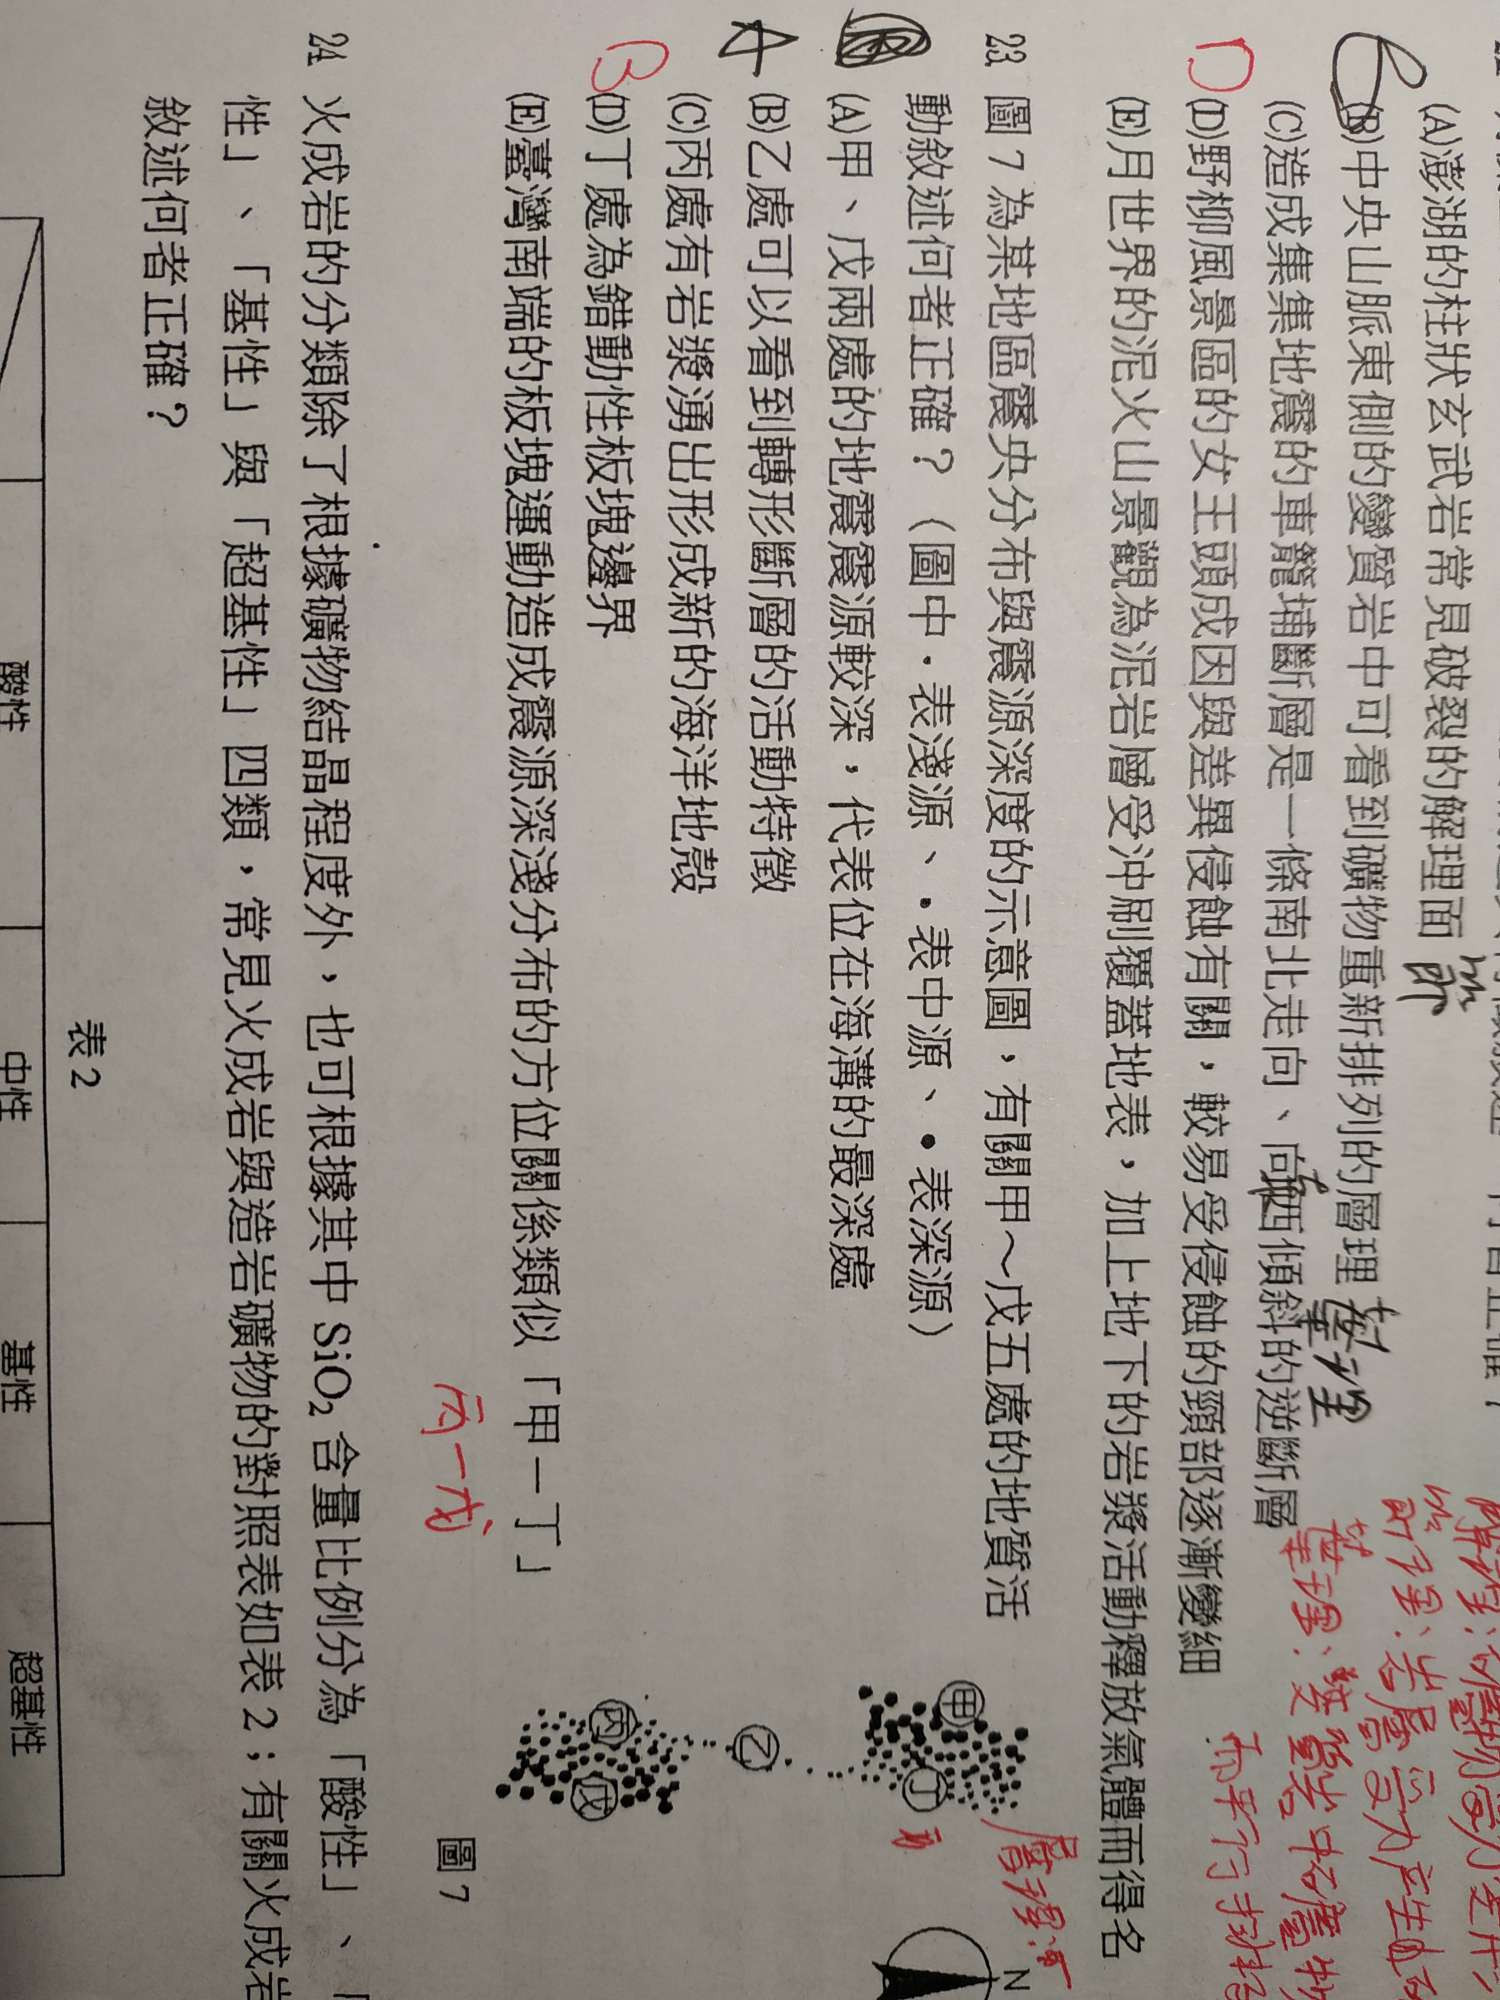 (A)澎湖的柱狀玄武岩常見破裂的解理面 節
(B)中央山脈東側的變質岩中可看到礦物重新排列的層理 葉理
(C)造成集集地震的車籠埔斷層是一條南北走向、向西傾斜的逆斷層
東
D
(D)野柳風景區的女王頭成因與差異侵蝕有關，較易受侵蝕的頸部逐漸變細
(E)月世界的泥火山景觀為泥岩層受沖刷覆蓋地表，加上地下的岩漿活動釋放氣體而得名
葉理：變質岩中礦物
而平行排
23 圖 7 為某地區震央分布與震源深度的示意圖，有關甲～戊五處的地質活
動敘述何者正確？（圖中・表淺源、・表中源、●表深源）
(A)甲、戊兩處的地震震源較深，代表位在海溝的最深處
(B)乙處可以看到轉形斷層的活動特徵
(C)丙處有岩漿湧出形成新的海洋地殼
B
(D)丁處為錯動性板塊邊界
(E)臺灣南端的板塊運動造成震源深淺分布的方位關係類似「甲－丁」
丙－戊
甲
丁
乙
丙
戊
N
圖 7
24 火成岩的分類除了根據礦物結晶程度外，也可根據其中 SiO₂ 含量比例分為「酸性」、「
性」、「基性」與「超基性」四類，常見火成岩與造岩礦物的對照表如表 2；有關火成岩
敘述何者正確？
表 2
酸性 中性 基性 超基性